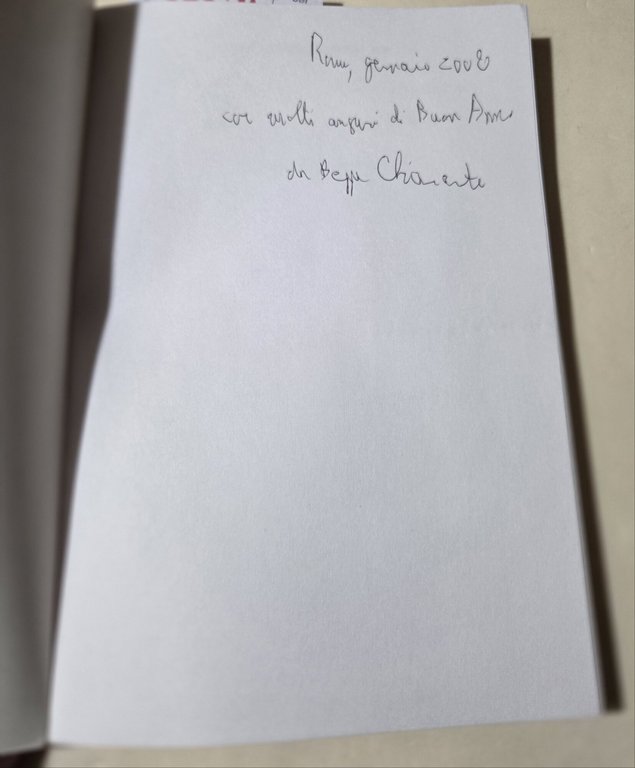 Roma, gennaio 2008
con molti auguri di Buon Anno
da Beppe Chiarante